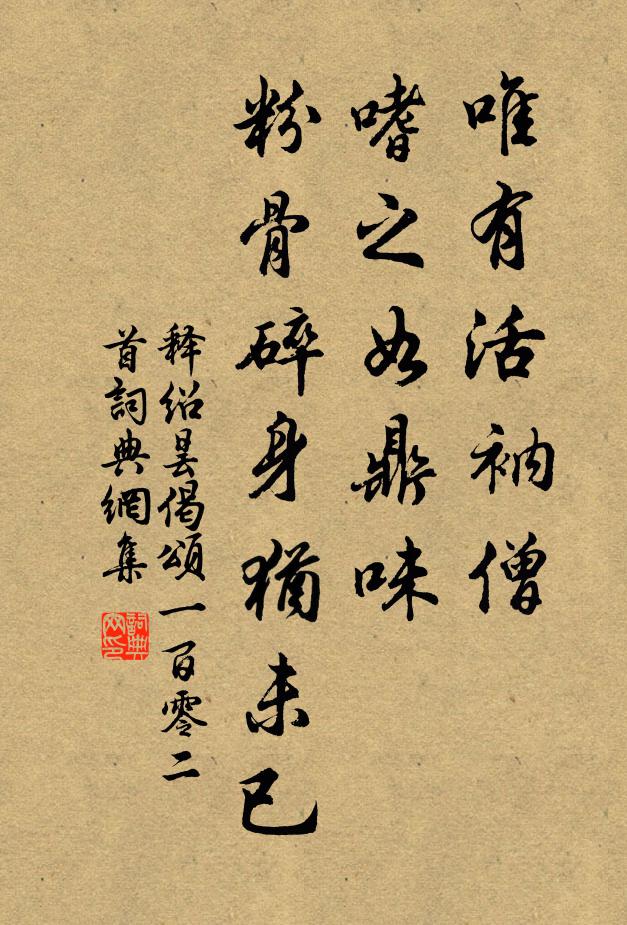 唯有活衲僧
嗜之如鼎味
粉骨碎身猶未已
释绍昙偈頌一百零二
首詞典網集
詞典